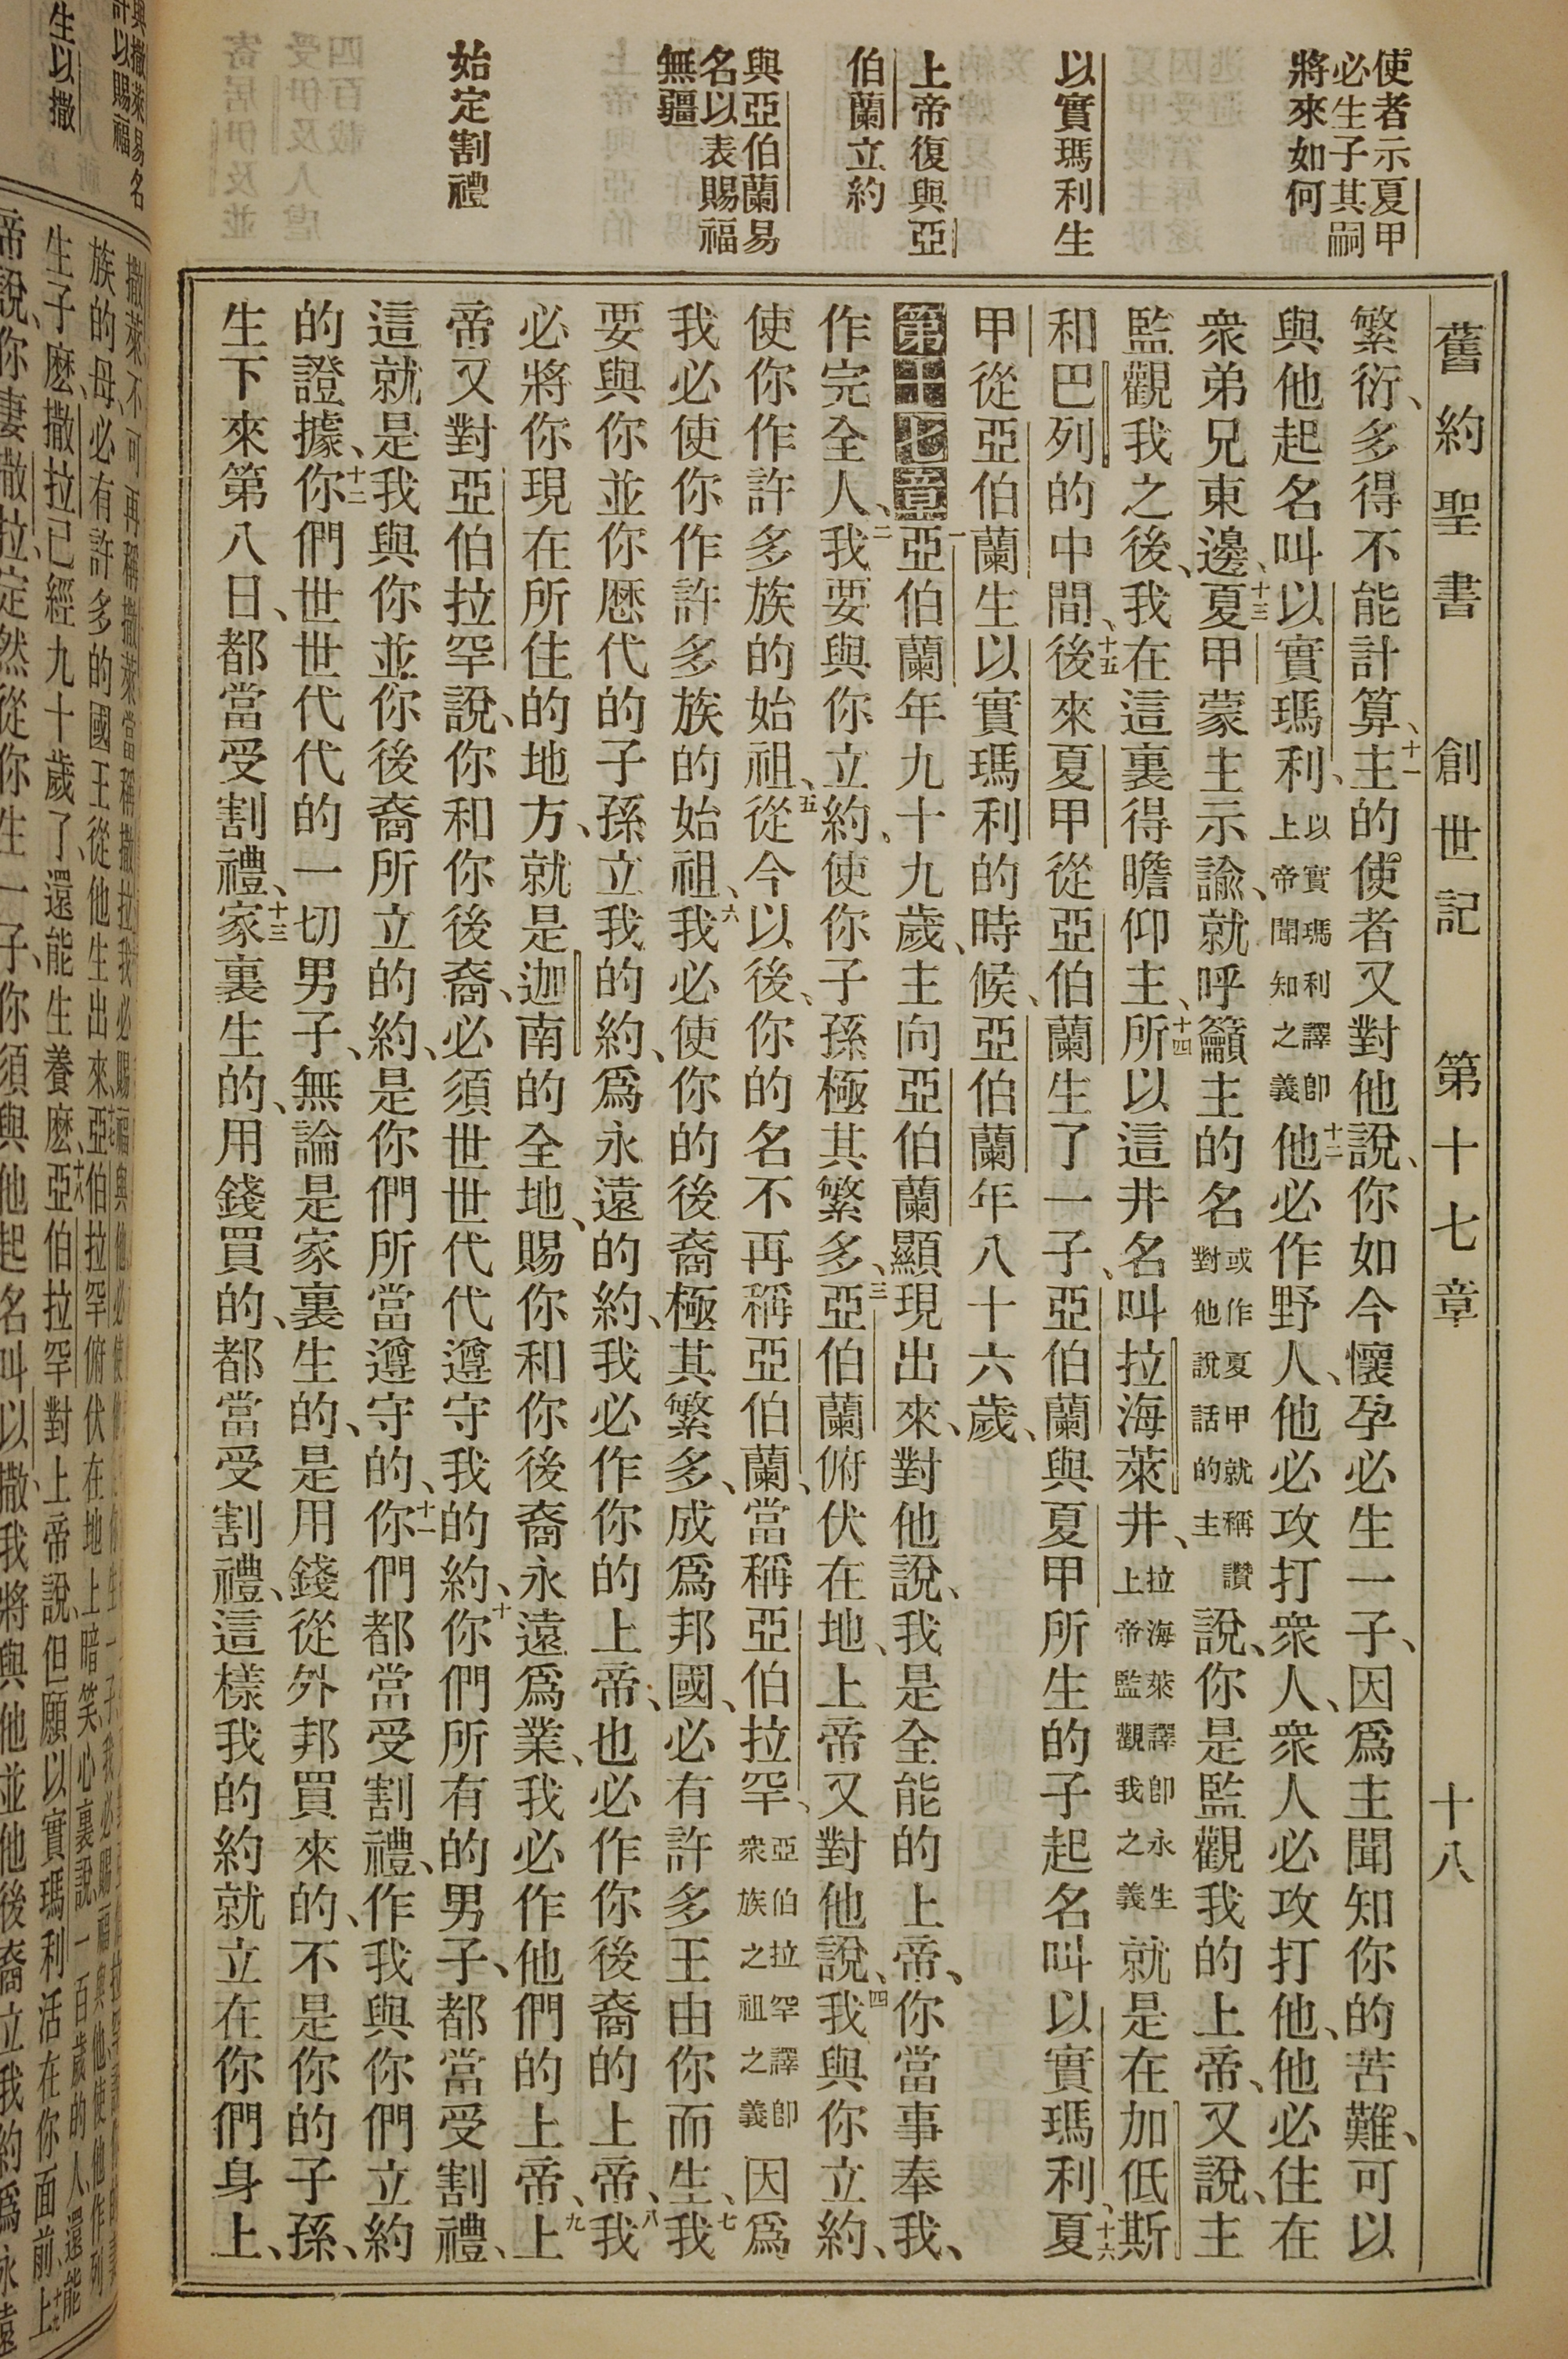 舊約聖書　創世記　第十七章　十八
使者示夏甲
必生子其嗣
將來如何
以實瑪利生
上帝復與亞
伯蘭立約
與亞伯蘭易
名以表賜福
無疆
始定割禮
繁衍、多得不能計算、十一主的使者又對他說、你如今懷孕必生一子、因爲主聞知你的苦難、可以
與他起名叫以實瑪利、以實瑪利譯卽上帝聞知之義十二他必作野人、他必攻打衆人、衆人必攻打他、他必住在
衆弟兄東邊、十三夏甲蒙主示諭、就呼籲主的名或作夏甲就稱讚對他說話的主說、你是監觀我的上帝、又說、主
監觀我之後、我在這裏得瞻仰主、十四所以這井名叫拉海萊井、拉海萊譯卽永生上帝監觀我之義就是在加低斯
和巴列的中間、十五後來夏甲從亞伯蘭生了一子、亞伯蘭與夏甲所生的子起名叫以實瑪利、十六夏
甲從亞伯蘭生以實瑪利的時候、亞伯蘭年八十六歲、
第十七章一亞伯蘭年九十九歲、主向亞伯蘭顯現出來、對他說、我是全能的上帝、你當事奉我、
作完全人、二我要與你立約、使你子孫極其繁多、三亞伯蘭俯伏在地、上帝又對他說、四我與你立約、
使你作許多族的始祖、五從今以後、你的名不再稱亞伯蘭、當稱亞伯拉罕、亞伯拉罕譯卽衆族之祖之義因爲
我必使你作許多族的始祖、六我必使你的後裔極其繁多、成爲邦國、必有許多王由你而生、七我
要與你並你歷代的子孫立我的約、爲永遠的約、我必作你的上帝、也必作你後裔的上帝、八我
必將你現在所住的地方、就是迦南的全地、賜你和你後裔永遠爲業、我必作他們的上帝、九上
帝又對亞伯拉罕說、你和你後裔、必須世世代代遵守我的約、十你們所有的男子、都當受割禮、
這就是我與你並你後裔所立的約、是你們所當遵守的、十一你們都當受割禮、作我與你們立約
的證據、十二你們世世代代的一切男子、無論是家裏生的、是用錢從外邦買來的、不是你的子孫、
生下來第八日、都當受割禮、十三家裏生的、用錢買的、都當受割禮、這樣我的約就立在你們身上、
與撒萊易名
計以賜福
生以撒
族的母、必有許多的國王從他生出來、十七亞伯拉罕俯伏在地上暗笑、心裏說、一百歲的人、還能
生子麽、撒拉已經九十歲了、還能生養麽、十八亞伯拉罕對上帝說、但願以實瑪利活在你面前、十九上
帝說、你妻撒拉、定然從你生一子、你須與他起名叫以撒、我將與他並他後裔立我約爲永遠